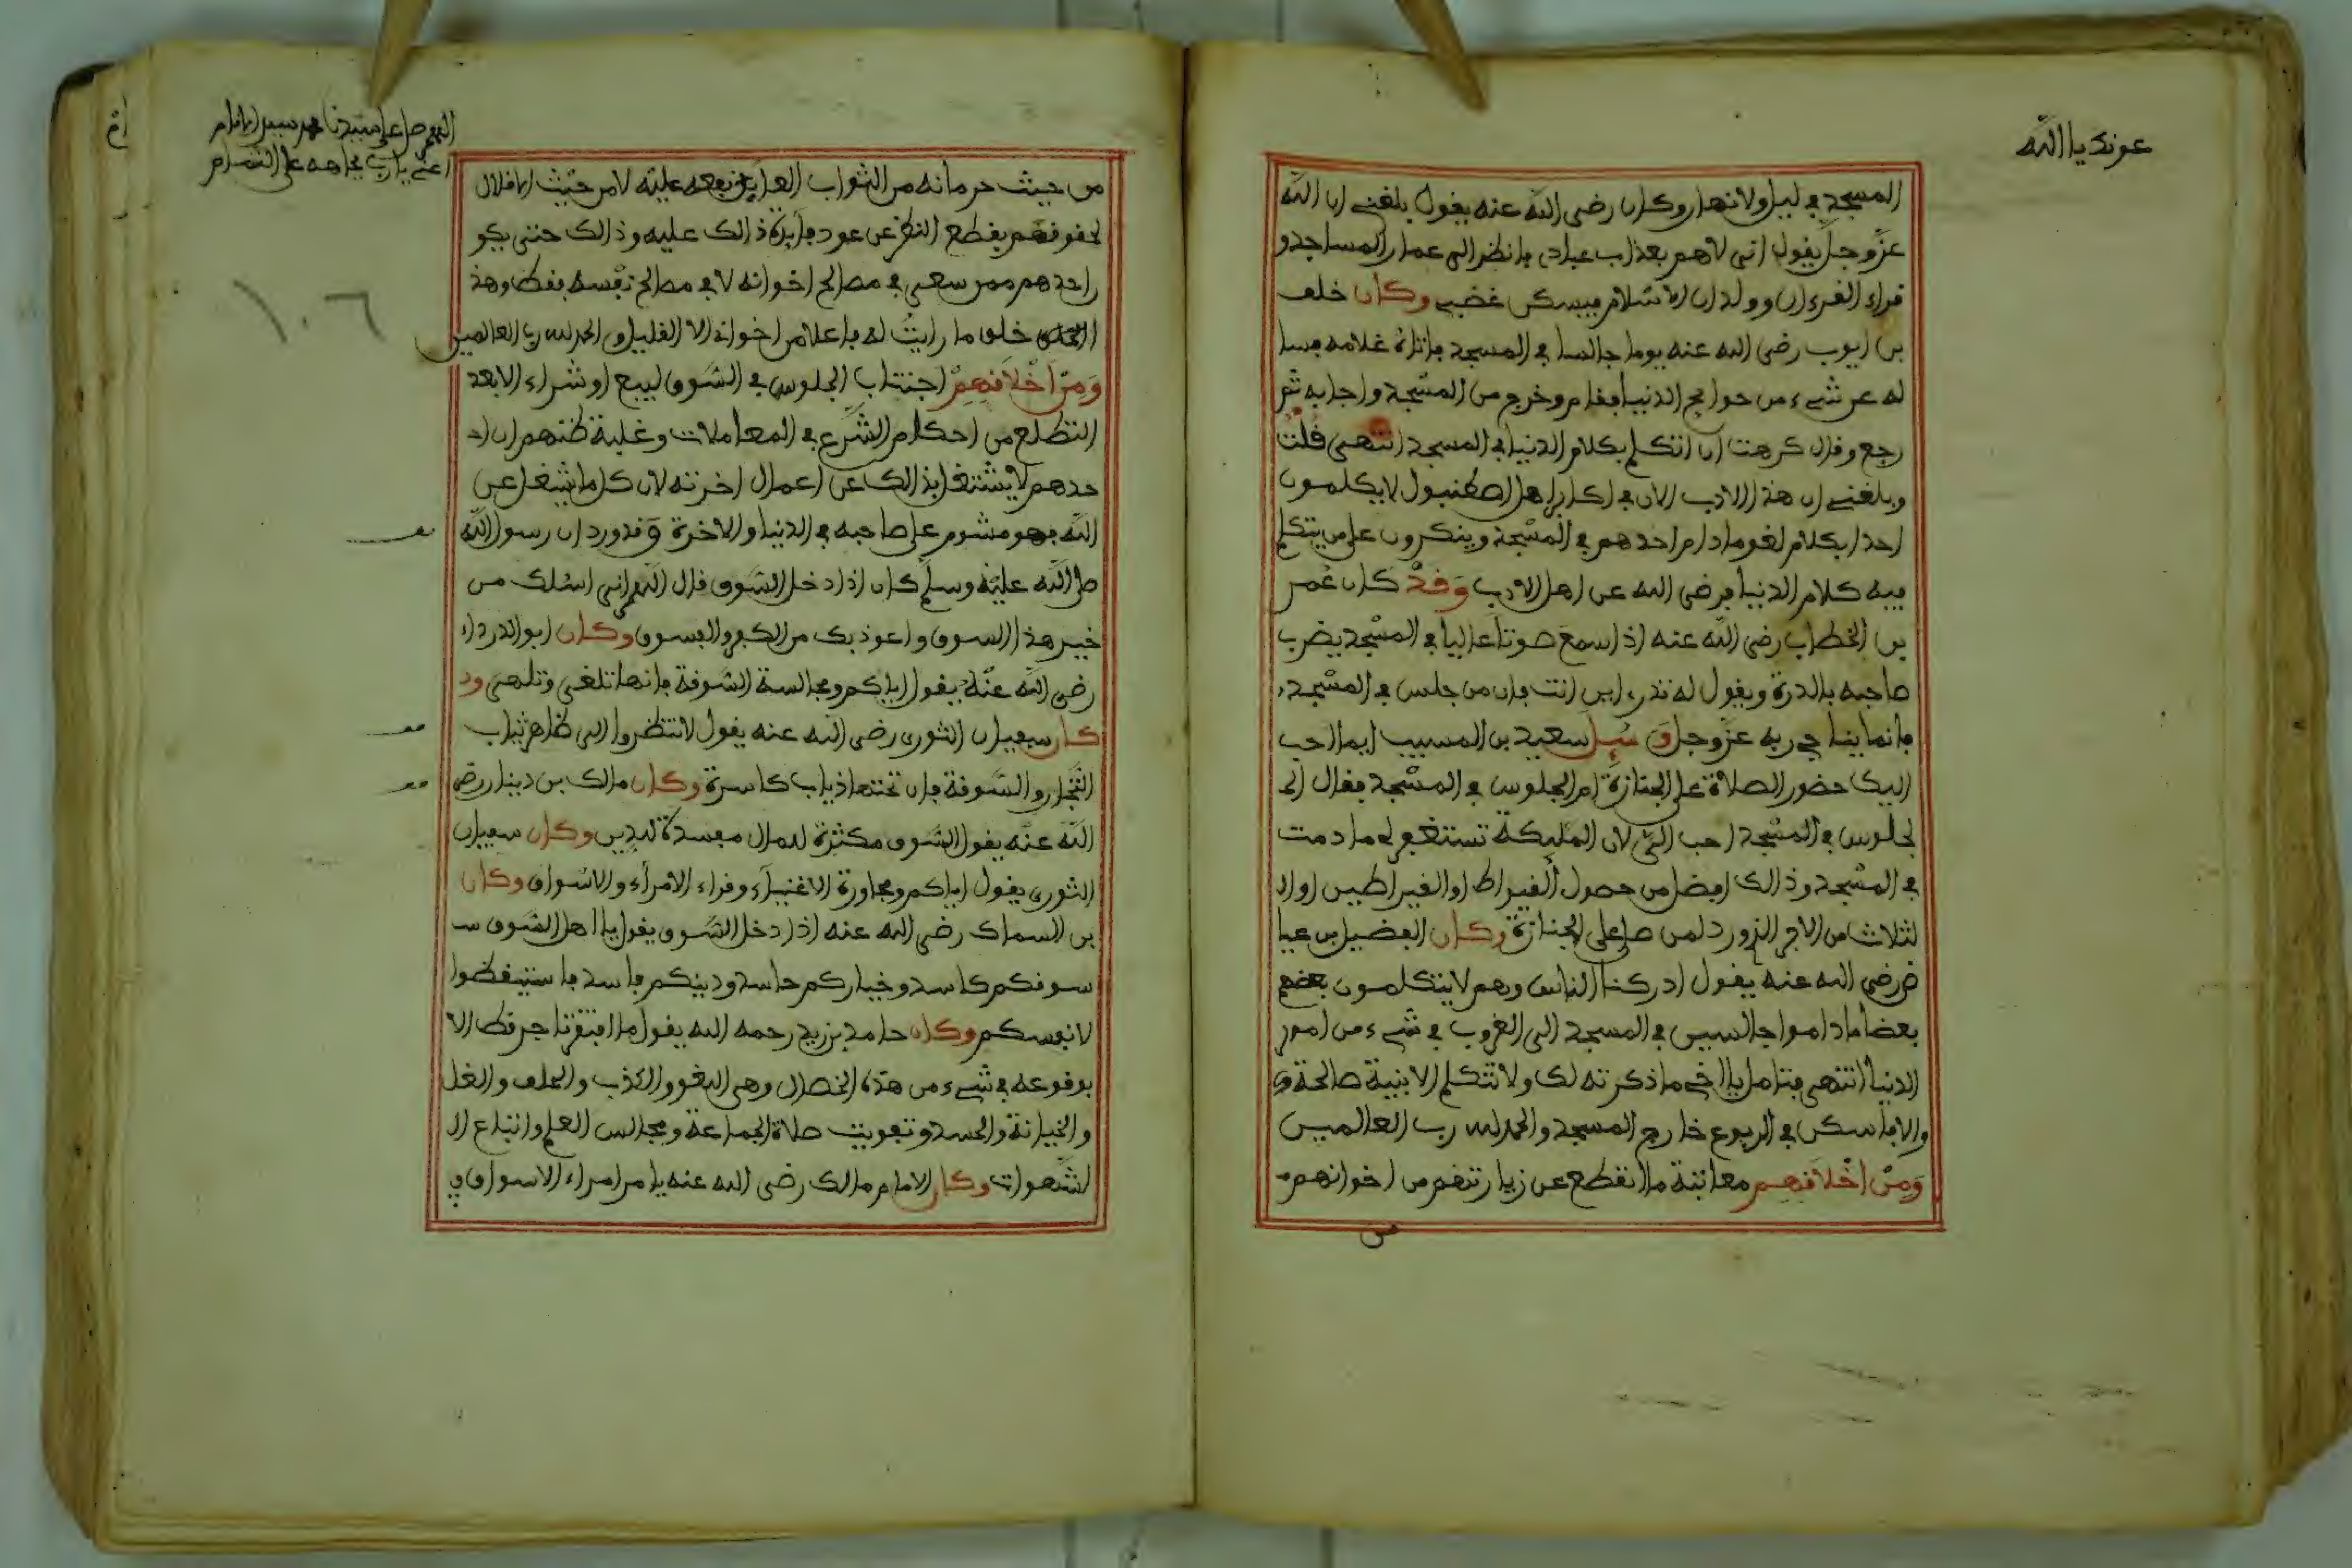 عونك يا الله
المسجد في ليل ولا نهار وكان رضي الله عنه يقول بلغني ان الله
عز وجل يقول اني لاهم بعذاب عبادي فانظر الى عمار المساجد و
قراء القرءان وولدان الاسلام فيسكن غضبي وكان خلف
بن ايوب رضي الله عنه يوما جالسا في المسجد فاتاه غلامه يسا
له عن شيء من حوايج الدنيا فقام وخرج من المسجد واجابه ثم
رجع وقال كرهت ان اتكلم بكلام الدنيا في المسجد انتهى قلت
وبلغني ان هذا الادب الان في اكابر اهل اصطنبول لا يكلمون
احدا بكلام لغو مادام احدهم في المسجد وينكرون على من يتكلم
فيه كلام الدنيا فرضي الله عن اهل الادب وقد كان عمر
بن الخطاب رضي الله عنه اذا سمع صوتا عاليا في المسجد يضرب
صاحبه بالدرة ويقول له تدري اين انت فان من جلس في المسجد
فانما يناجي ربه عز وجل و سيل سعيد بن المسيب ايما احب
اليك حضور الصلاة على الجنازة ام الجلوس في المسجد فقال ا
لجلوس في المسجد احب الي لان المليكة تستغفر لي ما دمت
في المسجد وذالك افضل من حصول القيراط او القيراطين او ا
لثلاث من الاجر الوارد لمن صلى على الجنازة وكان الفضيل بن عيا
ض رضي الله عنه يقول ادركنا الناس وهم لا يتكلمون بعضهم
بعضا ماداموا جالسين في المسجد الى الغروب في شيء من امور
الدنيا انتهى فتامل يا اخي ما ذكرته لك ولا تتكلم الا بنية صالحة و
والا فاسكن في الربوع خارج المسجد والحمد لله رب العالمين
ومن اخلاقهم معاتبة من انقطع عن زيارتهم من اخوانهم
من
اللهم صل على سيدنا محمد سيد الانام
اغثني يا رب بجاهه على التمام
١٠٦
من حيث حرمانه من الثواب العايد نفعه عليه لا من حيث اخلال
لحقوقهم بقطع النظر عن عود فايدة ذالك عليه وذالك حتى يكو
ن احدهم ممن سعى في مصالح اخوانه لا في مصالح نفسه فقط وهذا
الخلق خلق ما رايت له فاعلا من اخوانه الا القليل والحمد لله رب العالمين
ومن اخلاقهم اجتناب الجلوس في السوق لبيع او شراء الا بعد
التضلع من احكام الشرع في المعاملات وغلبة ظنهم ان ا
حدهم لا يشتغل بذالك عن اعمال اخرته لان كل ما شغل عن
الله فهو مشوم على صاحبه في الدنيا والاخرة وقد ورد ان رسول الله
صلى الله عليه وسلم كان اذا دخل السوق قال اللهم اني اسئلك من
خير هذا السوق واعوذ بك من الكفر والفسوق وكان ابو الدرداء
رضي الله عنه يقول اياكم ومجالسة السوقة فانها تلغي وتلهي و
كان سفيان الثوري رضي الله عنه يقول لا تنظروا الى ظاهر ثياب
التجار والسوقة فان تحتها ذياب كاسرة وكان مالك بن دينار رضي
الله عنه يقول السوق مكثرة للمال مفسدة للدين وكان سفيان
الثوري يقول اياكم ومجاورة الاغنياء وقراء الامراء والاسواق وكان
بن السماك رضي الله عنه اذا دخل السوق يقول يا اهل السوق
سوقكم كاسد وخياركم حاسد ودينكم فاسد فاستيقظوا
لانفسكم وكان حامد بن زيد رحمه الله يقول ما افتقر تاجر قط الا
بوقوعه في شيء من هذه الخصال وهي اللغو والكذب والحلف والغل
والخيانة والحسد وتفويت صلاة الجماعة ومجالس العلم واتباع ا
لشهوات وكان الامام مالك رضي الله عنه يامر امراء الاسواق